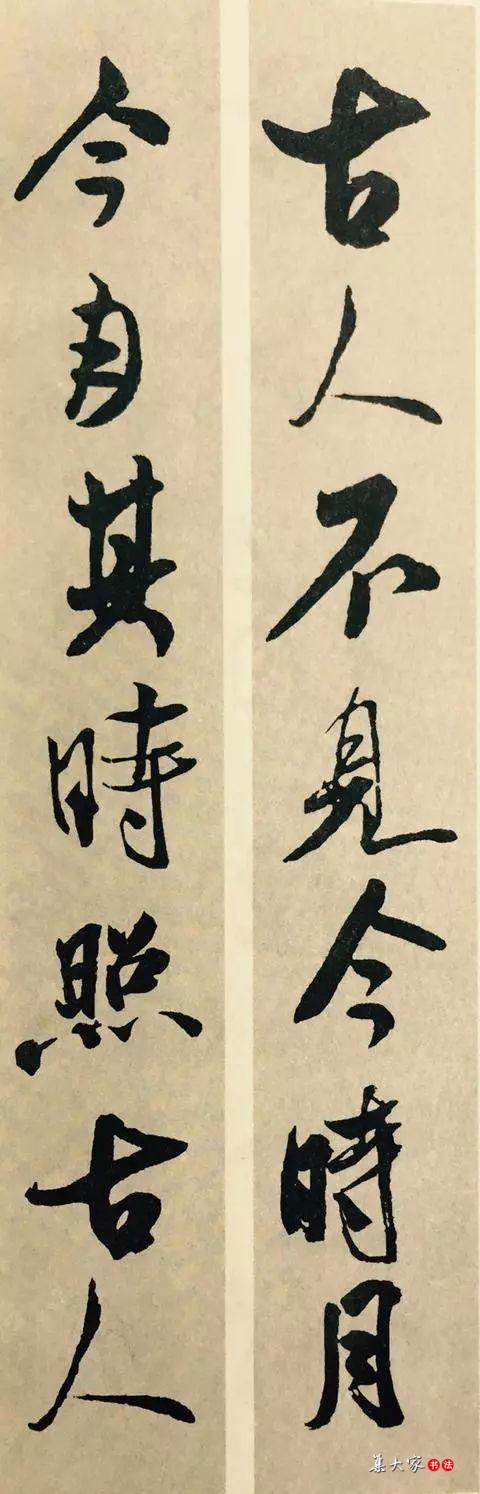 古人不見今時月
今月其時照古人
集大家 书法